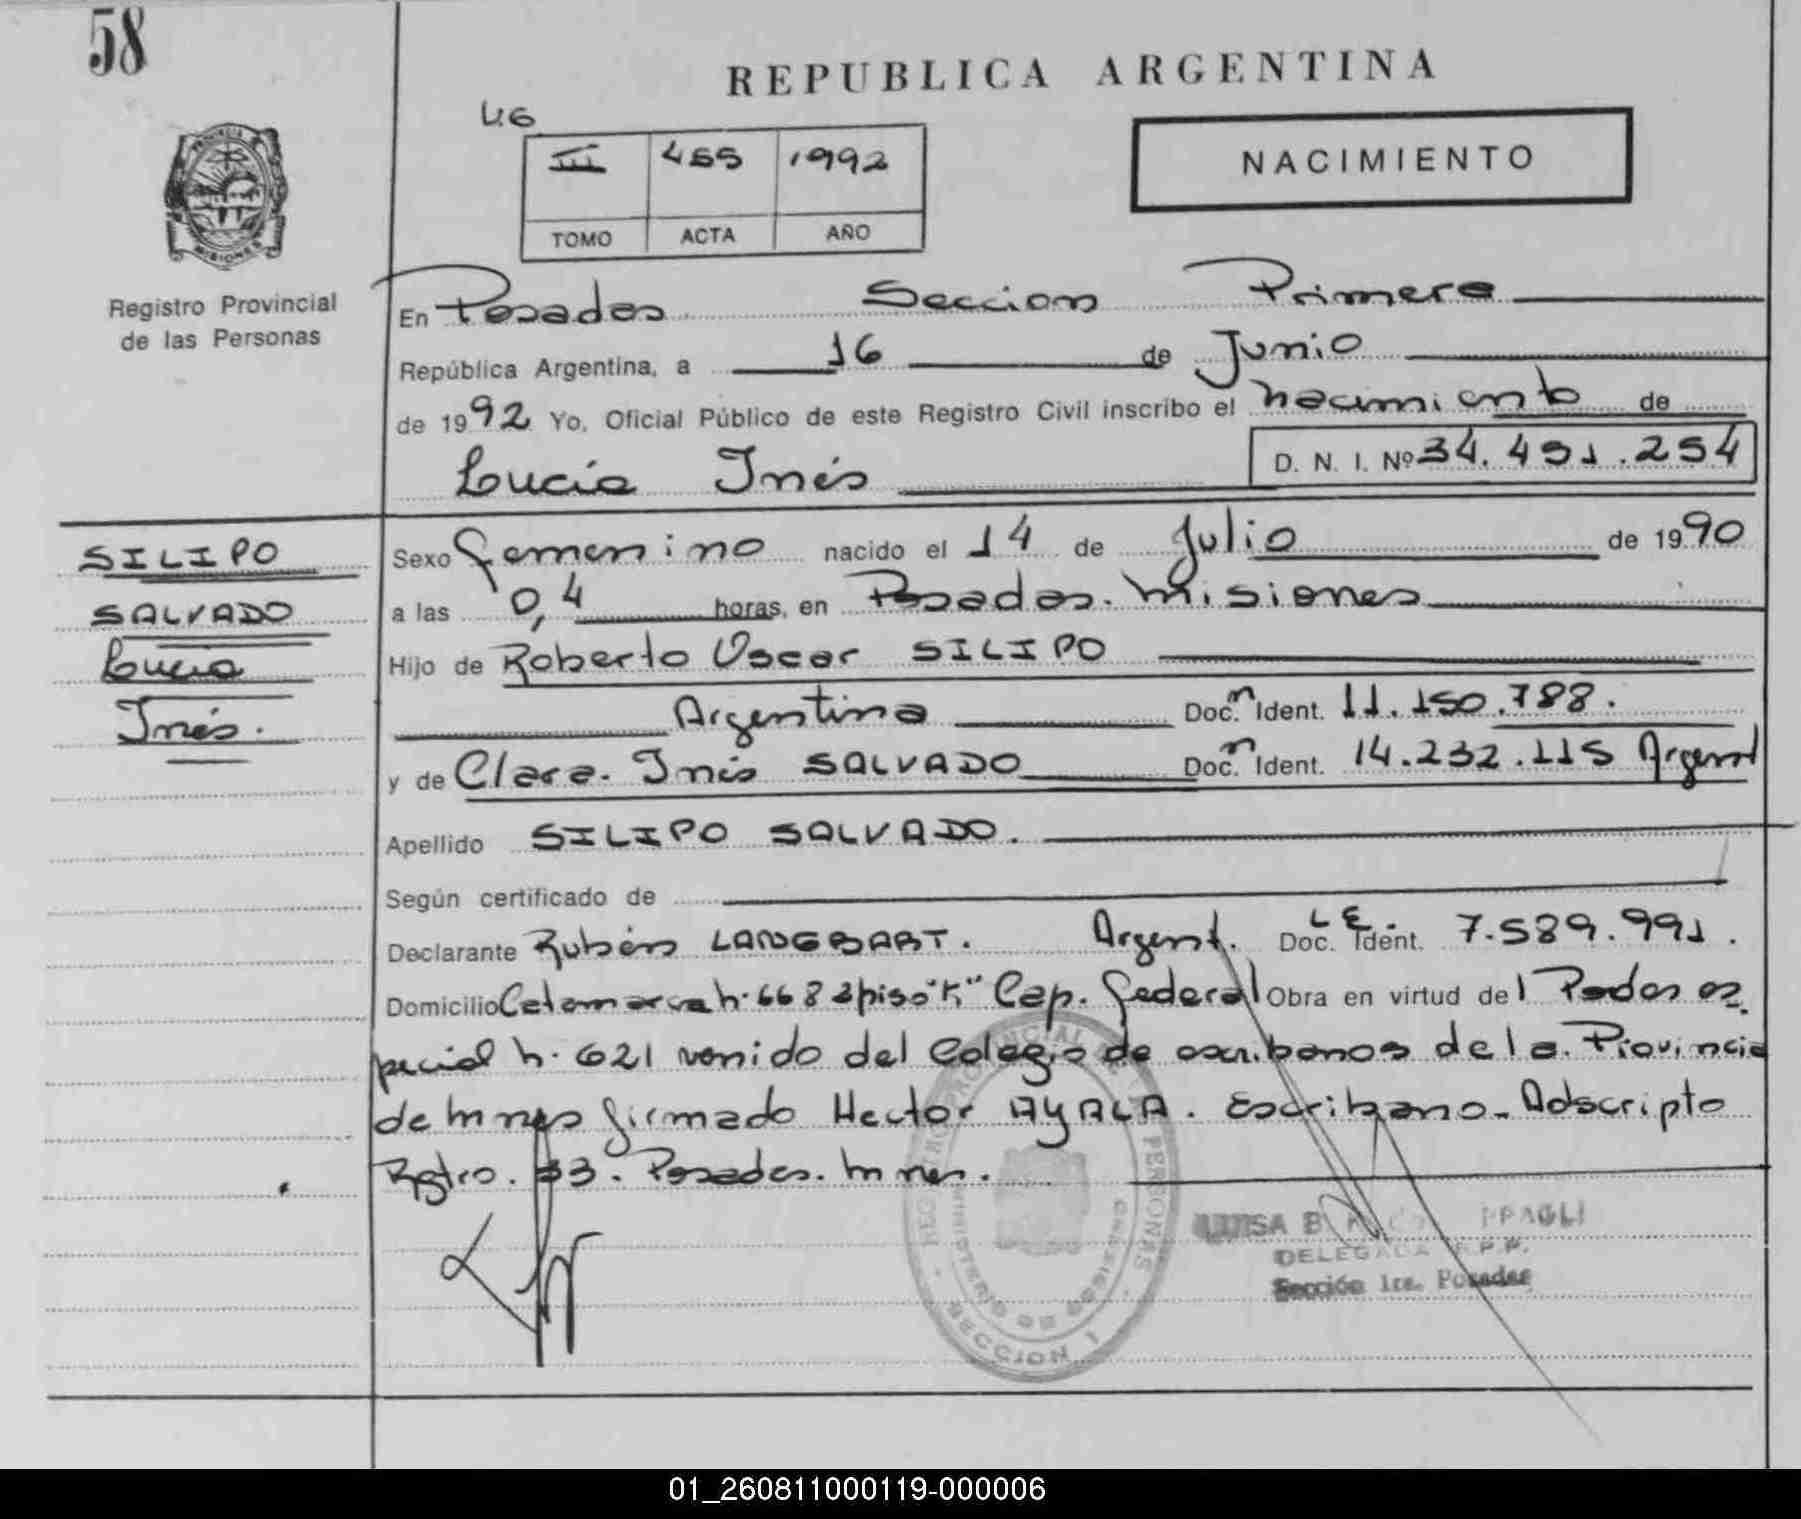 58
REPUBLICA ARGENTINA
46
III 455 1992
TOMO ACTA AÑO
NACIMIENTO
PROVINCIA DE MISIONES
Registro Provincial
de las Personas
En Posadas Seccion Primera
República Argentina, a 16 de Junio
de 1992 Yo, Oficial Público de este Registro Civil inscribo el nacimiento de
Lucia Inés D. N. I. Nº 34.491.254
SILIPO
SALVADO
Lucia
Inés.
Sexo femenino nacido el 14 de Julio de 1990
a las 0,4 horas, en Posadas. Misiones
Hijo de Roberto Oscar SILIPO
Argentina Doc. Ident. 11.150.788.
y de Clara. Inés SALVADO Doc. Ident. 14.232.115 Argent
Apellido SILIPO SALVADO.
Según certificado de
Declarante Rubén LANGBART. Argent. Doc. LE Ident. 7.589.991.
Domicilio Catamarca n. 66 piso "K" Cap. Federal Obra en virtud del Poder es
pecial n. 621 venido del Colegio de escribanos de la. Provincia
de Mnes firmado Hector AYALA. Escribano - Adscripto
Rgtro. 33. Posadas. Mnes.
REGISTRO PROVINCIAL DE LAS PERSONAS
MINISTERIO DE GOBIERNO
SECCION 1
DELEGADA R.P.P.
Sección 1ra. Posadas
01_260811000119-000006